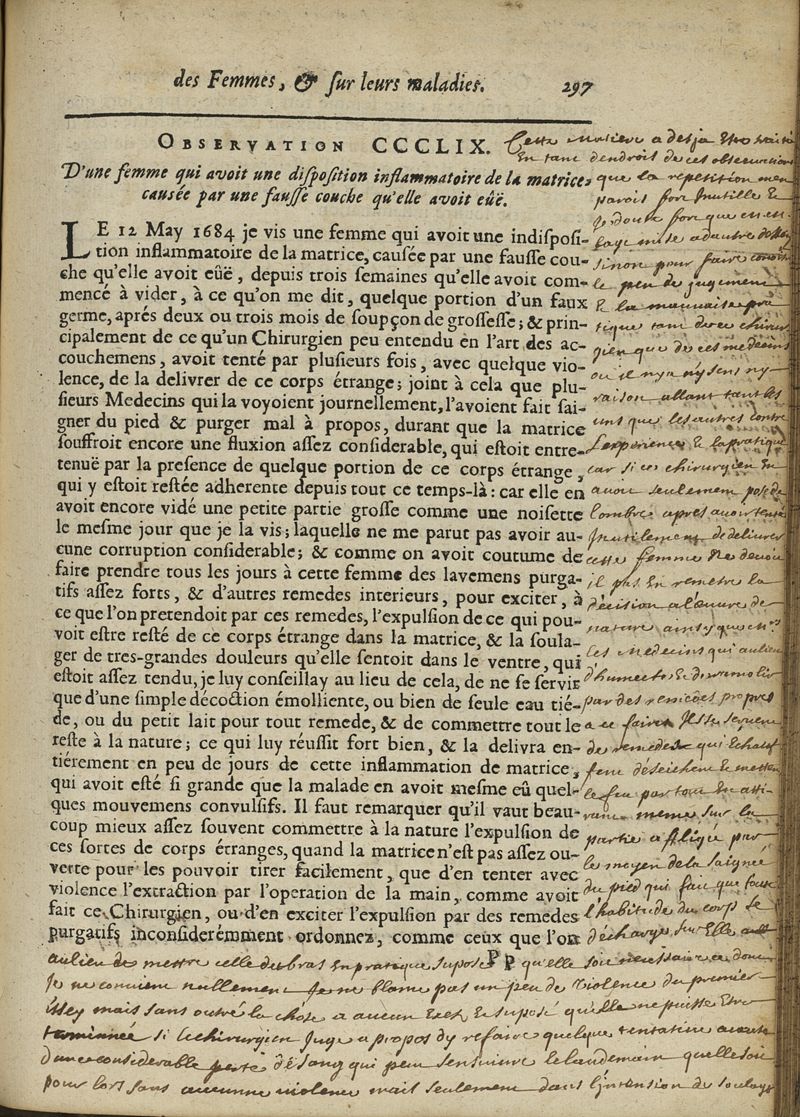 des Femmes, & sur leurs maladies. 297
OBSERVATION CCCLIX.
D'une femme qui avoit une disposition inflammatoire de la matrice,
causée par une fausse couche qu'elle avoit eüe.
LE 12 May 1684 je vis une femme qui avoit une indisposi-
tion inflammatoire de la matrice, causée par une fausse cou-
che qu'elle avoit eüe, depuis trois semaines qu'elle avoit com-
mencé à vider, à ce qu'on me dit, quelque portion d'un faux
germe, aprés deux ou trois mois de soupçon de grossesse; & prin-
cipalement de ce qu'un Chirurgien peu entendu en l'art des ac-
couchemens, avoit tenté par plusieurs fois, avec quelque vio-
lence, de la delivrer de ce corps étrange; joint à cela que plu-
sieurs Medecins qui la voyoient journellement, l'avoient fait sai-
gner du pied & purger mal à propos, durant que la matrice
souffroit encore une fluxion assez considerable, qui estoit entre-
tenuë par la presence de quelque portion de ce corps étrange,
qui y estoit restée adherente depuis tout ce temps-là: car elle en
avoit encore vidé une petite partie grosse comme une noisette
le mesme jour que je la vis; laquelle ne me parut pas avoir au-
cune corruption considerable; & comme on avoit coutume de
faire prendre tous les jours à cette femme des lavemens purga-
tifs assez forts, & d'autres remedes interieurs, pour exciter, à
ce que l'on pretendoit par ces remedes, l'expulsion de ce qui pou-
voit estre resté de ce corps étrange dans la matrice, & la soula-
ger de tres-grandes douleurs qu'elle sentoit dans le ventre, qui
estoit assez tendu, je luy conseillay au lieu de cela, de ne se servir
que d'une simple décoction émolliente, ou bien de seule eau tié-
de, ou du petit lait pour tout remede, & de commettre tout le
reste à la nature; ce qui luy réussit fort bien, & la delivra en-
tiérement en peu de jours de cette inflammation de matrice,
qui avoit esté si grande que la malade en avoit mesme eû quel-
ques mouvemens convulsifs. Il faut remarquer qu'il vaut beau-
coup mieux assez souvent commettre à la nature l'expulsion de
ces sortes de corps étranges, quand la matrice n'est pas assez ou-
verte pour les pouvoir tirer facilement, que d'en tenter avec
violence l'extraction par l'operation de la main, comme avoit
fait ce Chirurgien, ou d'en exciter l'expulsion par des remedes
purgatifs inconsiderémment ordonnez, comme ceux que l'on
Pp
Cette matiere a desja
En tant dendroit de ces observations
que la repetition men
parois fort Inutille &
Je doute fort que
sinon pour faire
le peu de jugement
& la mauvaise pra
tique tant de ce chirur
gien que de ces medecins
ou il ny a ny sens ny
raison allant tant les
uns que les autres contre
Lexperience & la pratique
car si ce chirurgien
avoit seulement
apres avoir tenté
Inutilement de delivrer
cette femme ne devoit
il pas En remetre la
décision a
nature ainsy que
les Medecins qui
par des remedes propres
a ce faire
de remedes qui Echauf
fent déseichent & mettent
le feu par tout
meme sur la
partie afligée par
le moyen de la saignée
du pied qui fait que
l'habitude du corps se
décharge sur Elle
aulieu de mettre celle du bras En pratique suposé qu'elle soit necessaire
Je ne convient nullement Je ne blame pas un peu de violence du premier
mais sans outré la chose a aucun & suposé qu'elle ne puisse Etre
terminnée si le chirurgien Juge a propos dy refaire quelque tentative
dune considerable perte de sang qui peut sensuivre le landemain
pour lors sans aucunne violence mais seulement dans l'intension de